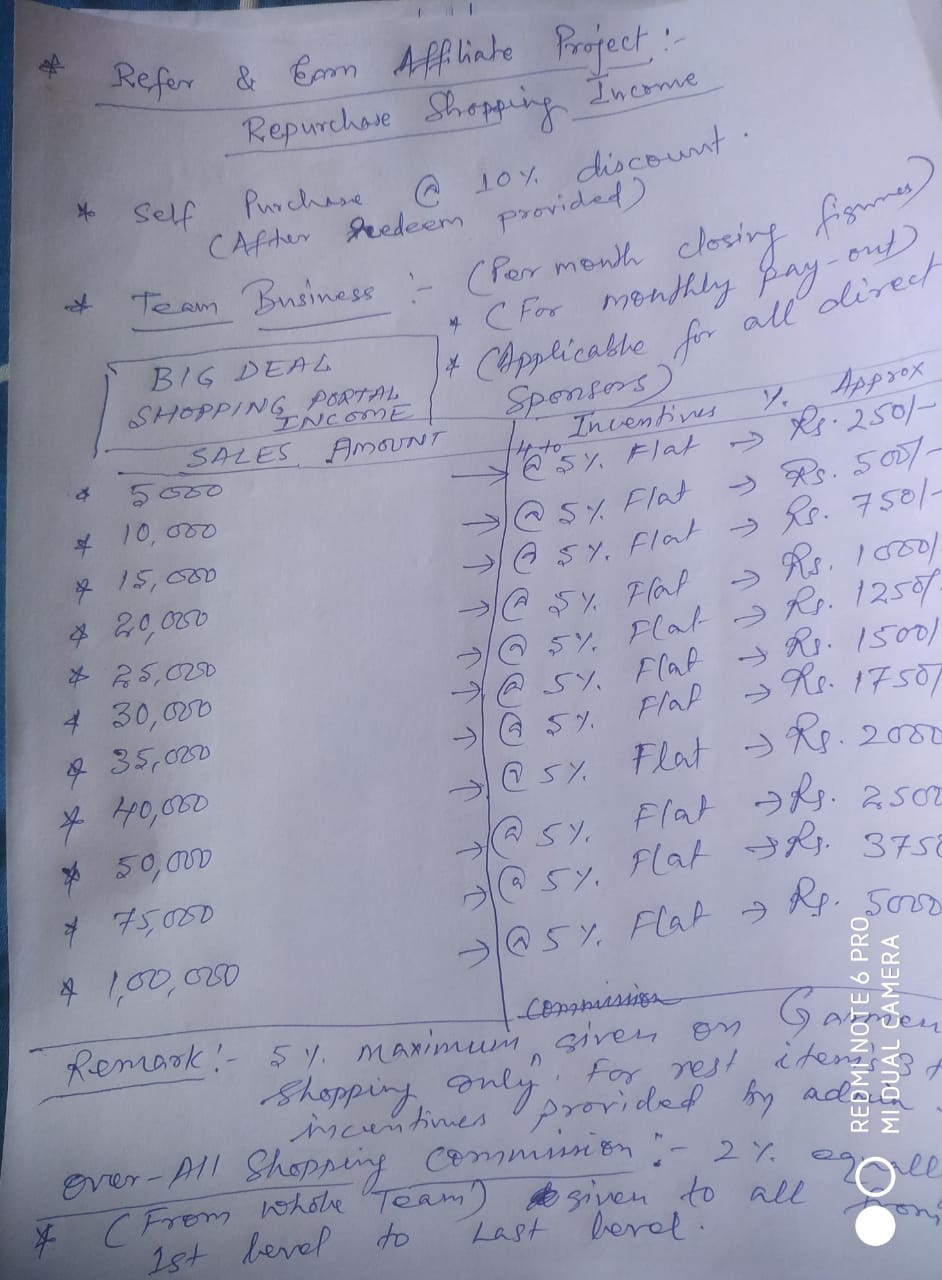 * Refer & Earn Affiliate Project :-
Repurchase Shopping Income
* Self Purchase @ 10% discount.
(After redeem provided)
* Team Business :- (Per month closing figures)
* (For monthly pay-out)
* (Applicable for all direct
Sponsors)
BIG DEAL
SHOPPING PORTAL
INCOME
SALES AMOUNT
Incentives % Approx
* 5000 → @ 5% Flat → Rs. 250/-
* 10,000 → @ 5% Flat → Rs. 500/-
* 15,000 → @ 5% Flat → Rs. 750/-
* 20,000 → @ 5% Flat → Rs. 1000/-
* 25,000 → @ 5% Flat → Rs. 1250/-
* 30,000 → @ 5% Flat → Rs. 1500/-
* 35,000 → @ 5% Flat → Rs. 1750/-
* 40,000 → @ 5% Flat → Rs. 2000
* 50,000 → @ 5% Flat → Rs. 2500
* 75,000 → @ 5% Flat → Rs. 3750
* 1,00,000 → @ 5% Flat → Rs. 5000
commission
Remark :- 5% maximum given on Garmen
Shopping only. For rest items
incentives provided by admin
Over-All Shopping Commission :- 2%
* (From whole Team) given to all
1st level to Last level.
REDMI NOTE 6 PRO
MI DUAL CAMERA